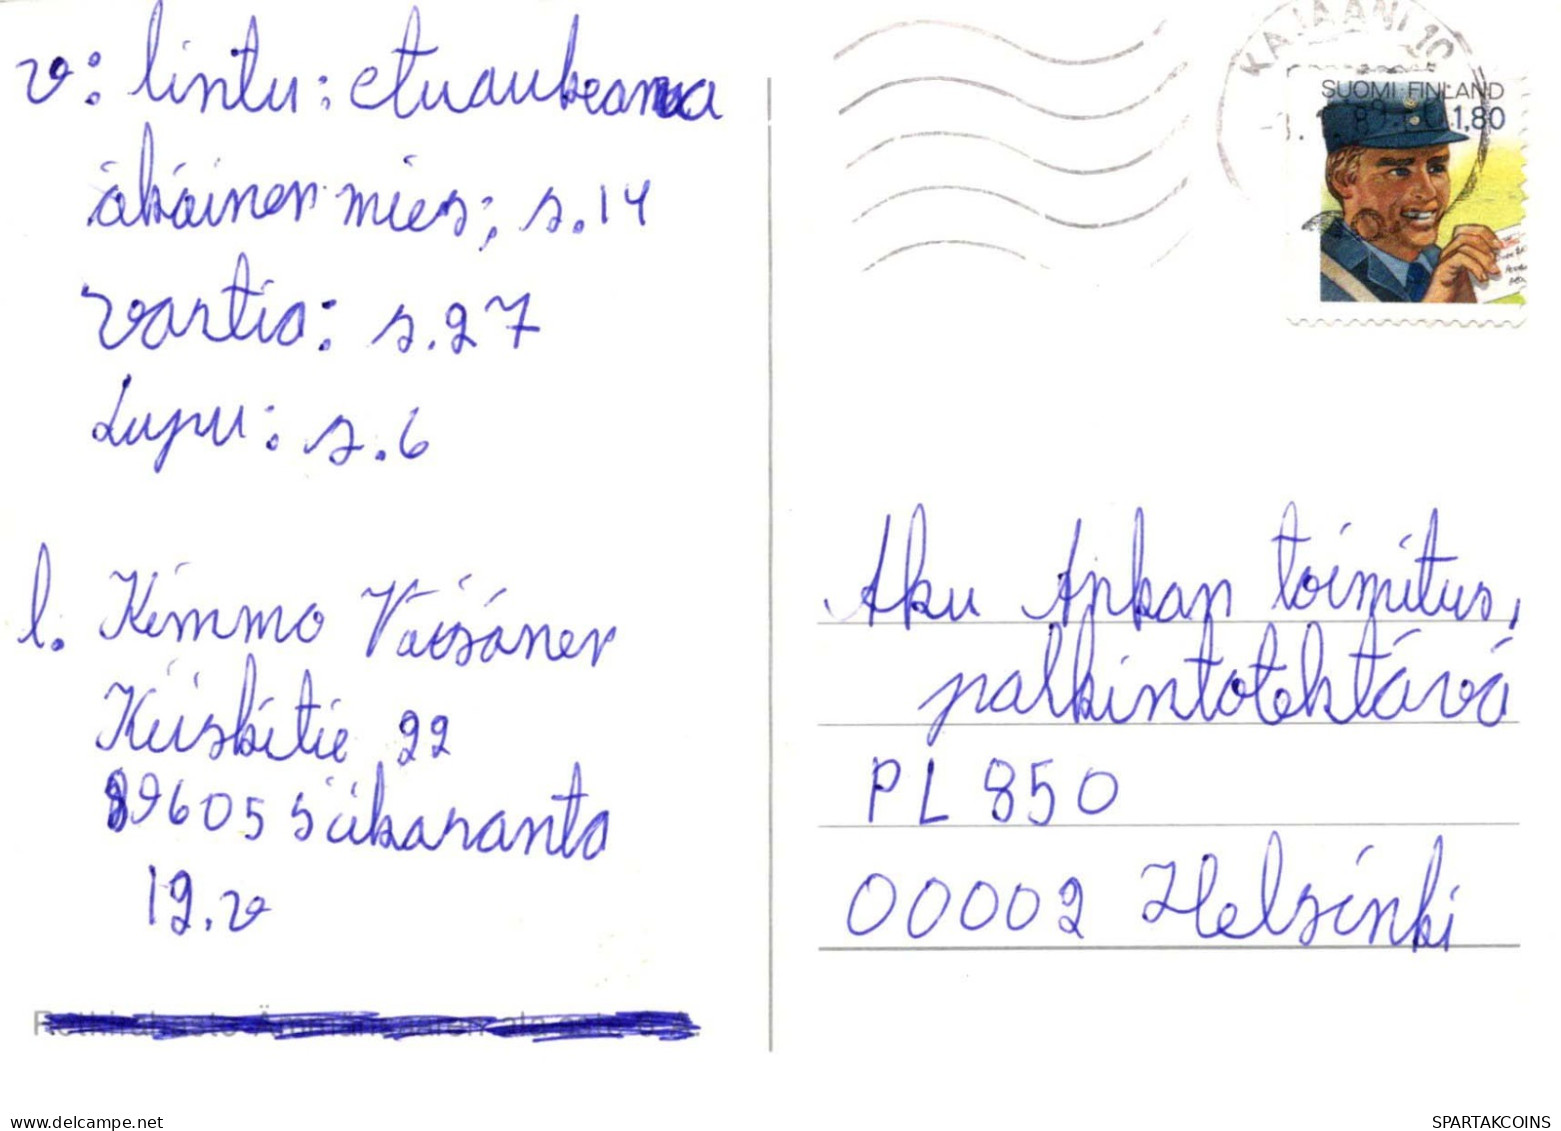 v: lintu: etuaukeama
äkäinen mies: s.14
vartio: s.27
Lupu: s.6
l. Kimmo Väisänen
Kiiskitie 22
89605 Siikaranta
12.v
KAJAANI 10
SUOMI FINLAND
1,80
Aku Ankan toimitus,
palkintotehtävä
PL 850
00002 Helsinki
www.delcampe.net
your uncle dagobert
SPARTAKCOINS